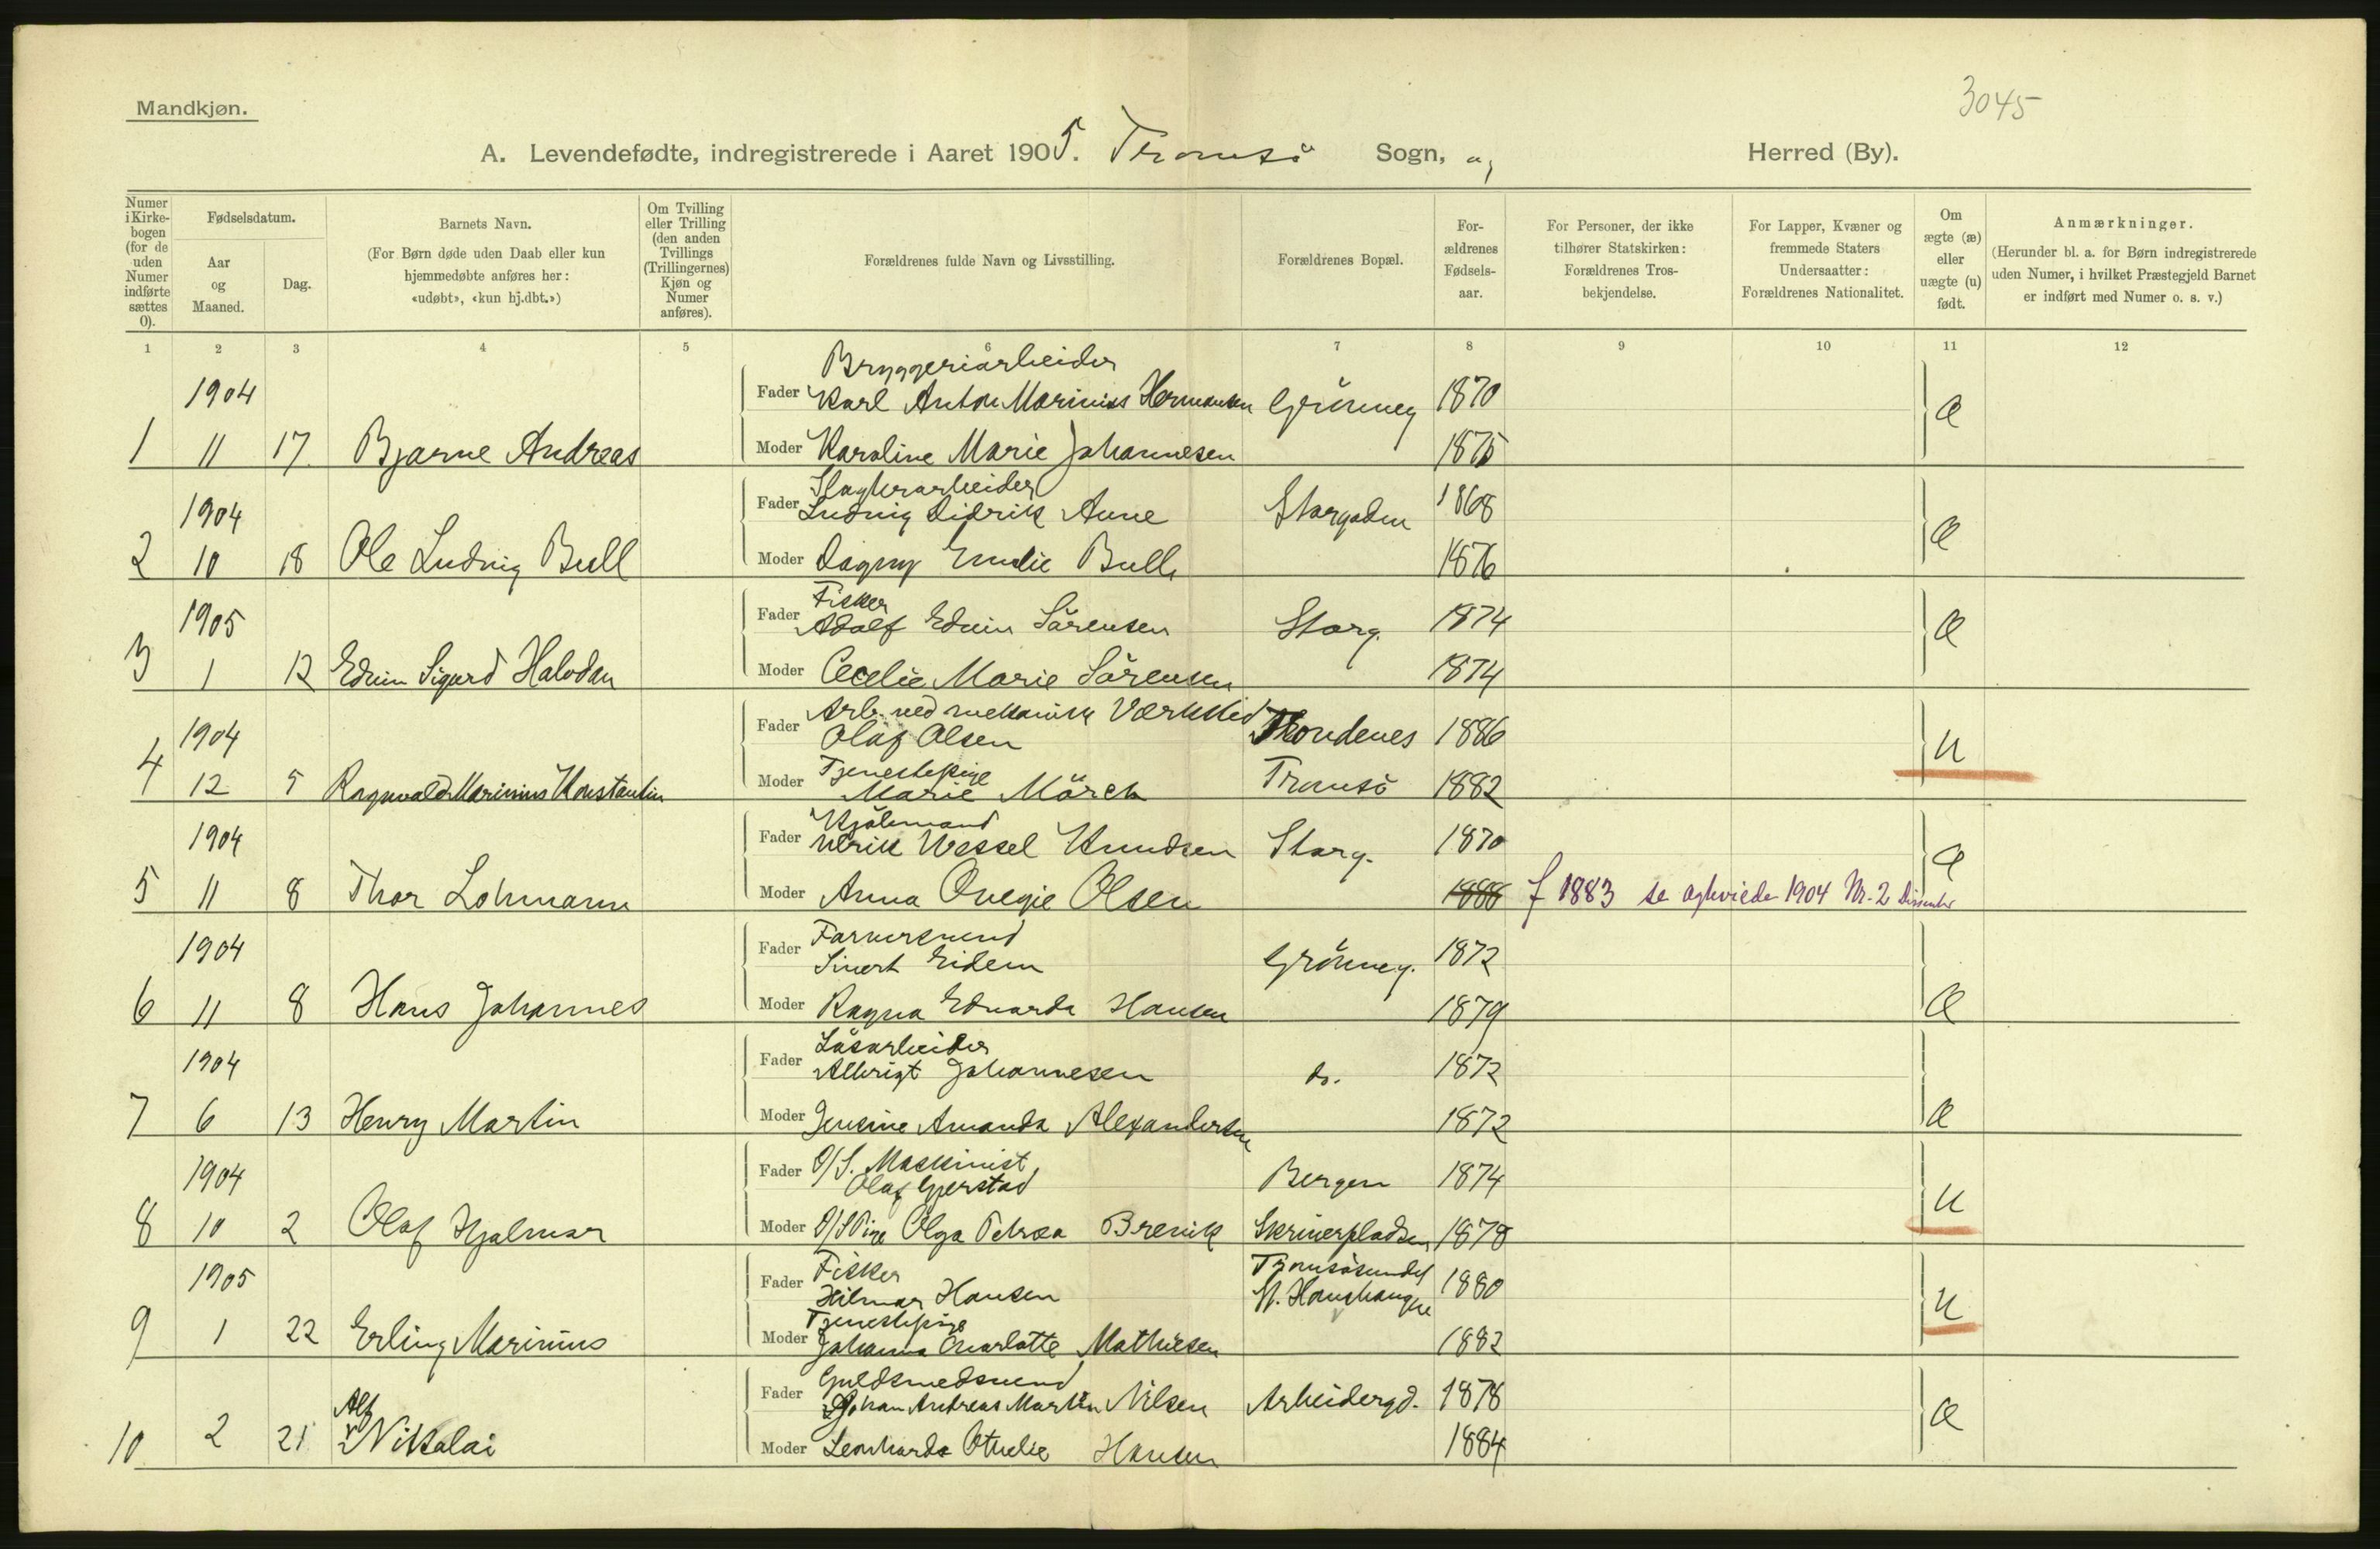 3045
Mandkjøn.
A. Levendefødte, indregistrerede i Aaret 1905. Tromsö Sogn, og Herred (By).
Numer i Kirkebogen (for de uden Numer indførte sættes 0).
Fødselsdatum.
Aar og Maaned.
Dag.
Barnets Navn.
(For Børn døde uden Daab eller kun hjemmedøbte anføres her: «udøbt», «kun hj.dbt.»)
Om Tvilling eller Trilling (den anden Tvillings (Trillingernes) Kjøn og Numer anføres).
Forældrenes fulde Navn og Livsstilling.
Forældrenes Bopæl.
For-ældrenes Fødsels-aar.
For Personer, der ikke tilhører Statskirken: Forældrenes Tros-bekjendelse.
For Lapper, Kvæner og fremmede Staters Undersaatter: Forældrenes Nationalitet.
Om ægte (æ) eller uægte (u) født.
Anmærkninger.
(Herunder bl. a. for Børn indregistrerede uden Numer, i hvilket Præstegjeld Barnet er indført med Numer o. s. v.)
1 2 3 4 5 6 7 8 9 10 11 12
Bryggeriarbeider
1904 Fader Karl Anton Marinius Hermansen Grönneg 1870 æ
1 11 17 Bjarne Andreas Moder Karoline Marie Johannesen 1875
Slagterarbeider
1904 Fader Ludvig Didrik Aune Storgaden 1868 æ
2 10 18 Ole Ludvig Bull Moder Dagny Emilie Bull 1876
Fisker
1905 Fader Adolf Edvin Sörensen Storg. 1874 æ
3 1 12 Edvin Sigurd Halvdan Moder Cecelie Marie Sörensen 1874
Arb. ved mekanisk Værksted
1904 Fader Olaf Olsen Throndenes 1886 u
Tjenestepige
4 12 5 Ragnvald Marinius Konstantin Moder Marie Mörch Tromsö 1882
Kjölmand
1904 Fader Ulrik Wessel Knudsen Storg. 1870 æ
5 11 8 Thor Lohmann Moder Anna Ovegie Olsen 1886 f 1883 se agteviede 1904 Nr. 2 Dissenter
Farversvend
1904 Fader Sivert Eidem Grönneg. 1872
6 11 8 Hans Johannes Moder Ragna Edvarda Hansen 1879 æ
Lösarbeider
1904 Fader Albrigt Johannesen do. 1872
7 6 13 Henry Martin Moder Jensine Amanda Alexandersen 1872 æ
O/S. Maskinist,
1904 Fader Olaf Gjerstad Bergen 1874 u
8 10 2 Olaf Hjalmar Moder O/S Pige Olga Petrea Brevik Skriverpladsen 1878
Fisker Tromsösundet
1905 Fader Hilmar Hansen St. Hanshaugen 1880 u
Tjenestepige
9 1 22 Erling Marinius Moder Johanna Charlotte Mathisen 1882
Guldsmedsvend
Fader Johan Andreas Martin Nilsen Arbeidergd. 1878 æ
Alf
10 2 21 Nikolai Moder Leonharda Othelie Hansen 1884